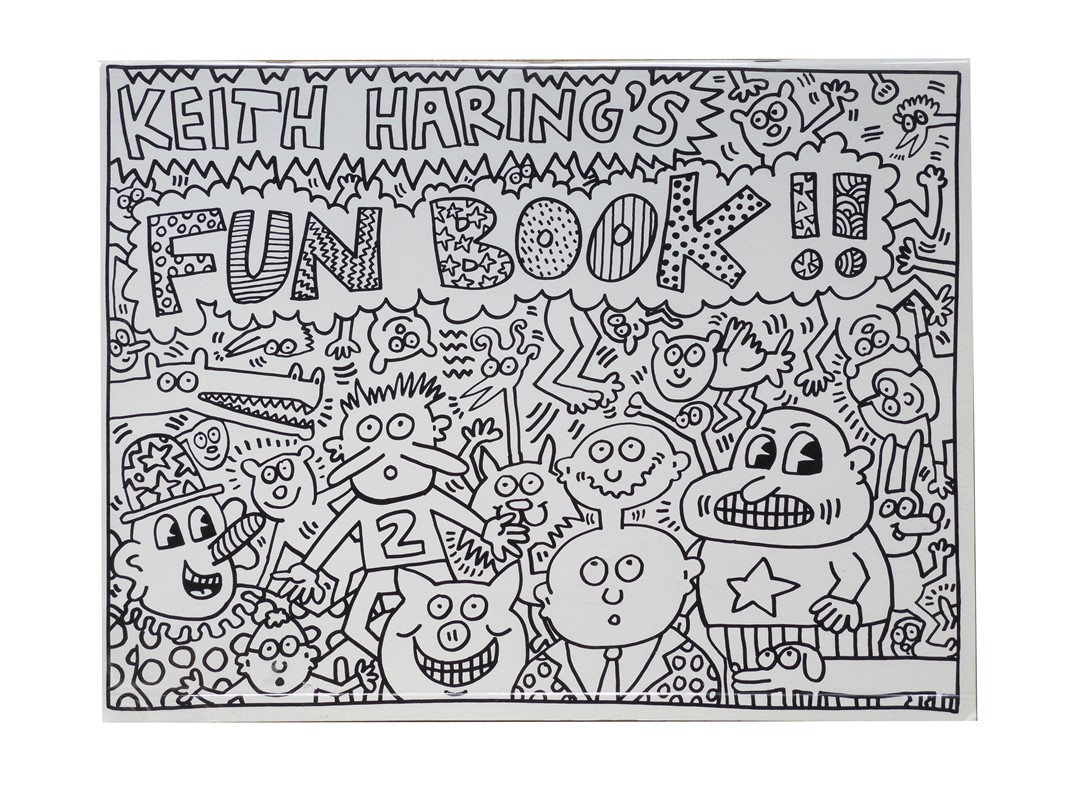 KEITH HARING'S
FUN BOOK!!
2